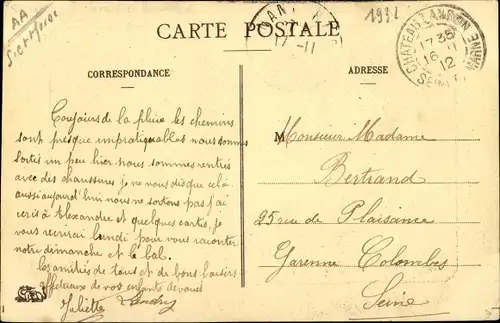 AA
Siet & Marne
1912
CARTE POSTALE
17 -11
CHATEAU-LANDON
17 35
16 11
12
SEINE MARNE
CORRESPONDANCE
ADRESSE
Toujours de la pluie les chemins
sont presque impratiquables nous sommes
sortis un peu hier nous sommes rentrés
avec des chaussures je ne vous dis que celà
aussi aujourd'hui nous ne sortons pas j'ai
écris à Alexandre et quelques cartes, je
vous recrirai lundi pour vous raconter
notre dimanche et le bal.
Les amitiés de tous et de bons baisers
affectueux de vos enfants devoués
Juliette
Monsieur Madame
Bertrand
25 rue de Plaisance
Garenne Colombes
Seine